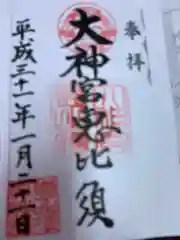 奉拝
大神宮恵比須
平成三十一年一月二十一日